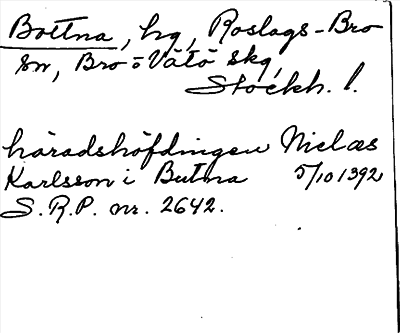 Bottna, hg, Roslags-Bro
sn, Bro o Vätö skg,
Stockh. l.
häradshöfdingen Niclas
Karlsson i Butna 5/10 1392
S.R.P. nr. 2642.